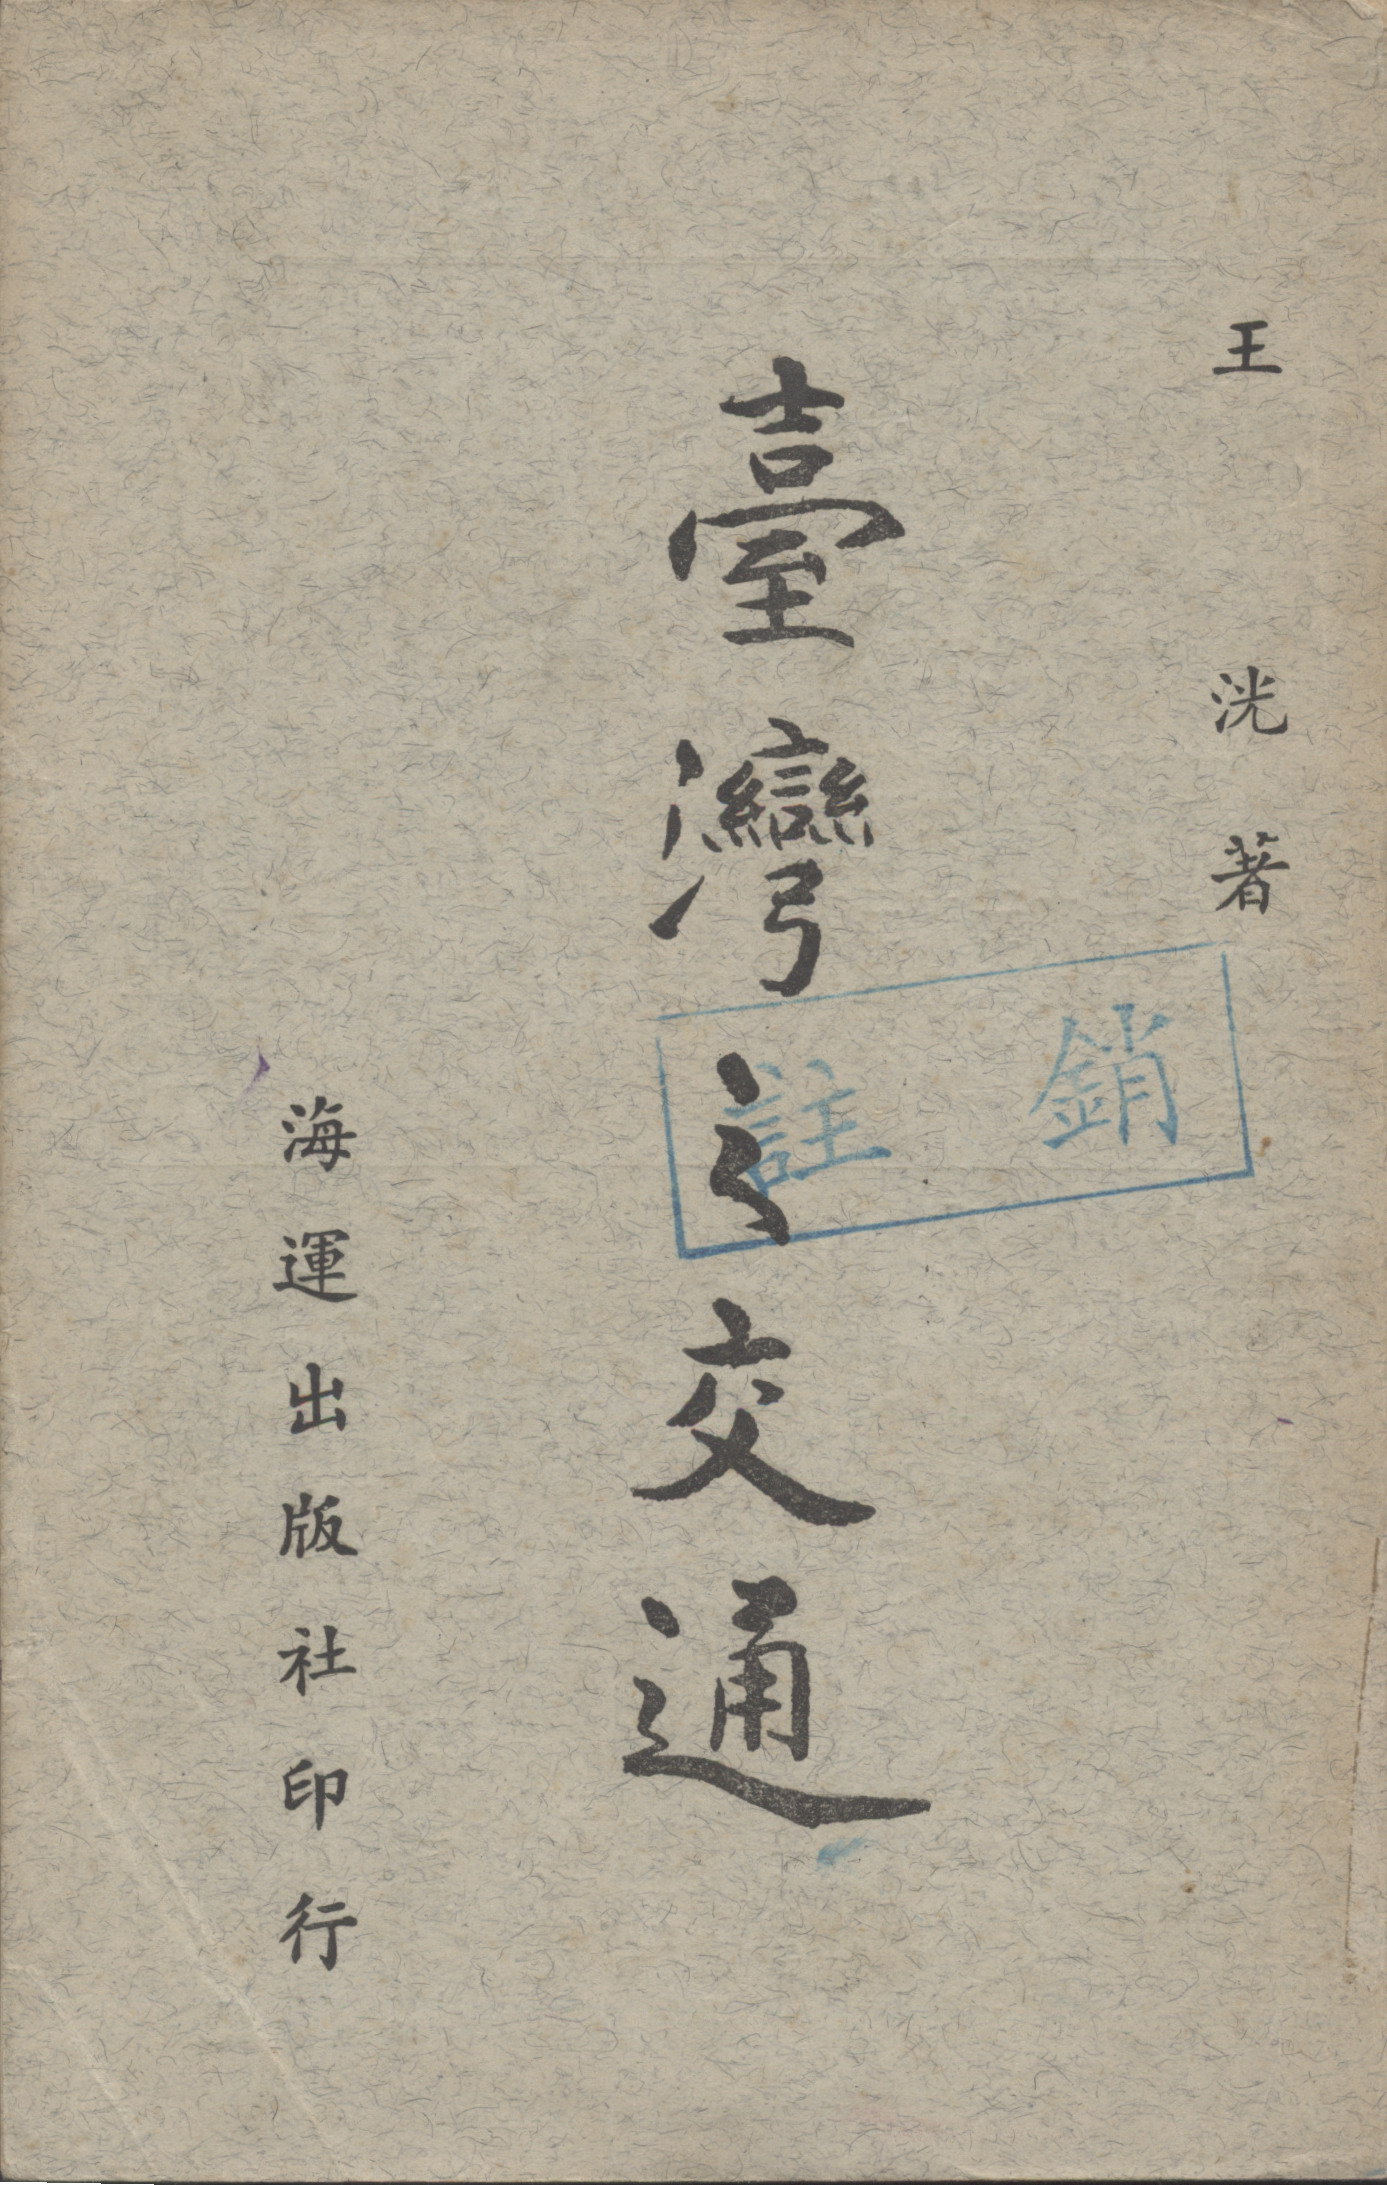 王洸著
臺灣之交通
註銷
海運出版社印行